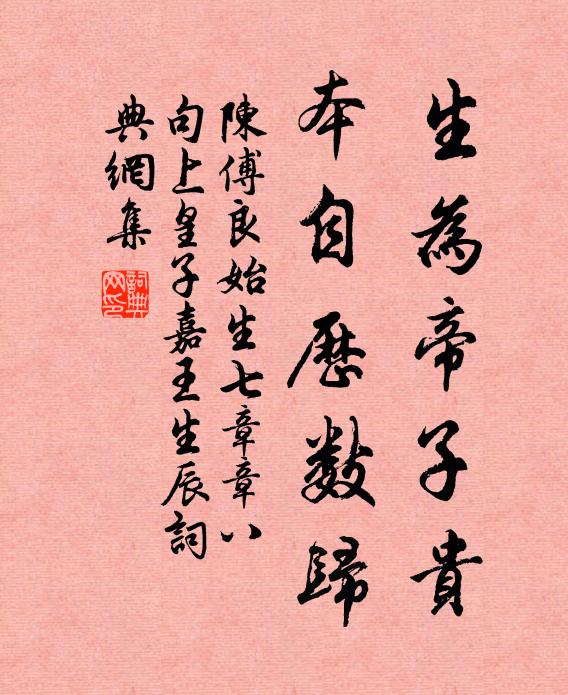 生為帝子貴
本自歷數歸
陳傅良始生七章章八
句上皇子嘉王生辰詞
典網集
詞典网印